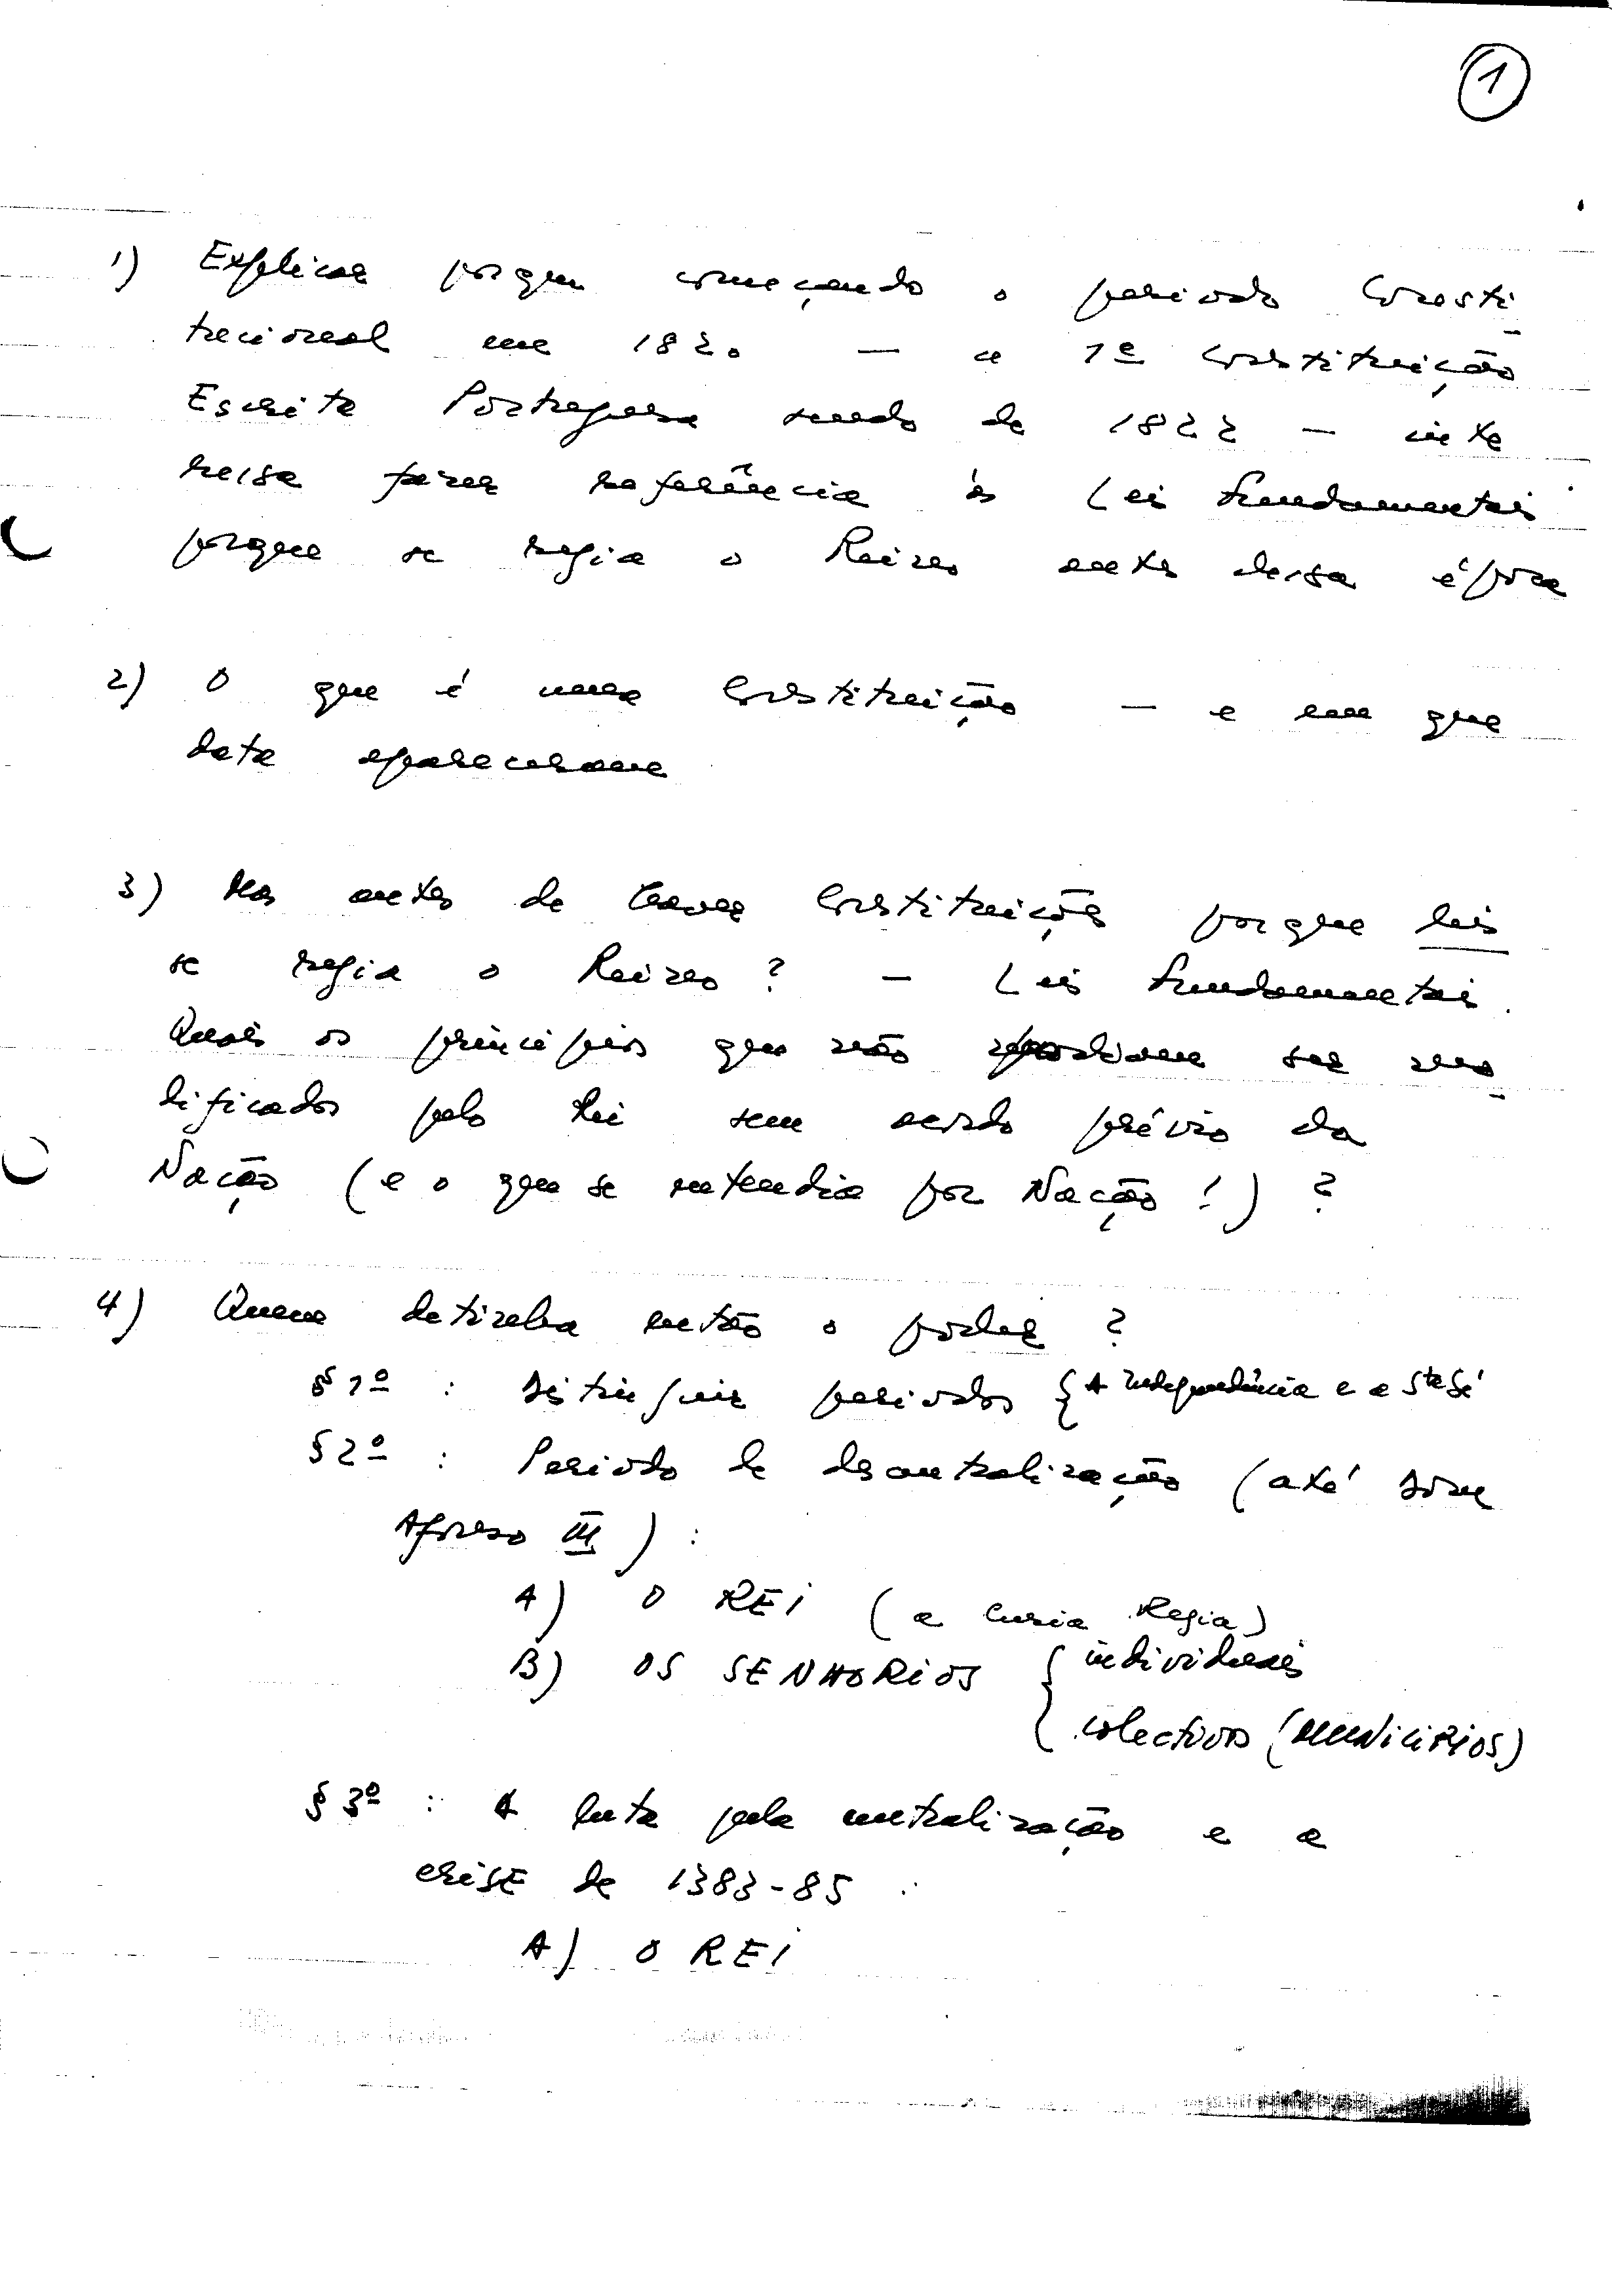 1
1) Explicar porque começando o período Consti-
tucional em 1820 — a 1ª Constituição
Escrita Portuguesa sendo de 1822 — inte
ressa fazer referência às Leis Fundamentais
porque se regia o Reino antes dessa época
2) O que é uma Constituição — e em que
data apareceram
3) Mas antes de haver Constituições porque leis
se regia o Reino? — Leis Fundamentais.
Quais os princípios que não podiam ser mo-
dificados pelo Rei sem acordo prévio da
Nação (e o que se entendia por Nação!)?
4) Quem detinha então o poder?
§1º: Distinguir períodos { A Independência e a Stª Sé
§2º: Período de descentralização (até Dom
Afonso III):
A) O REI (a Curia Regia)
B) OS SENHORIOS { individuais
colectivos (MUNICIPIOS)
§3º: A luta pela centralização e a
crise de 1383-85:
A) O REI